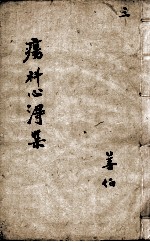 三
瘍科心得集
善伯